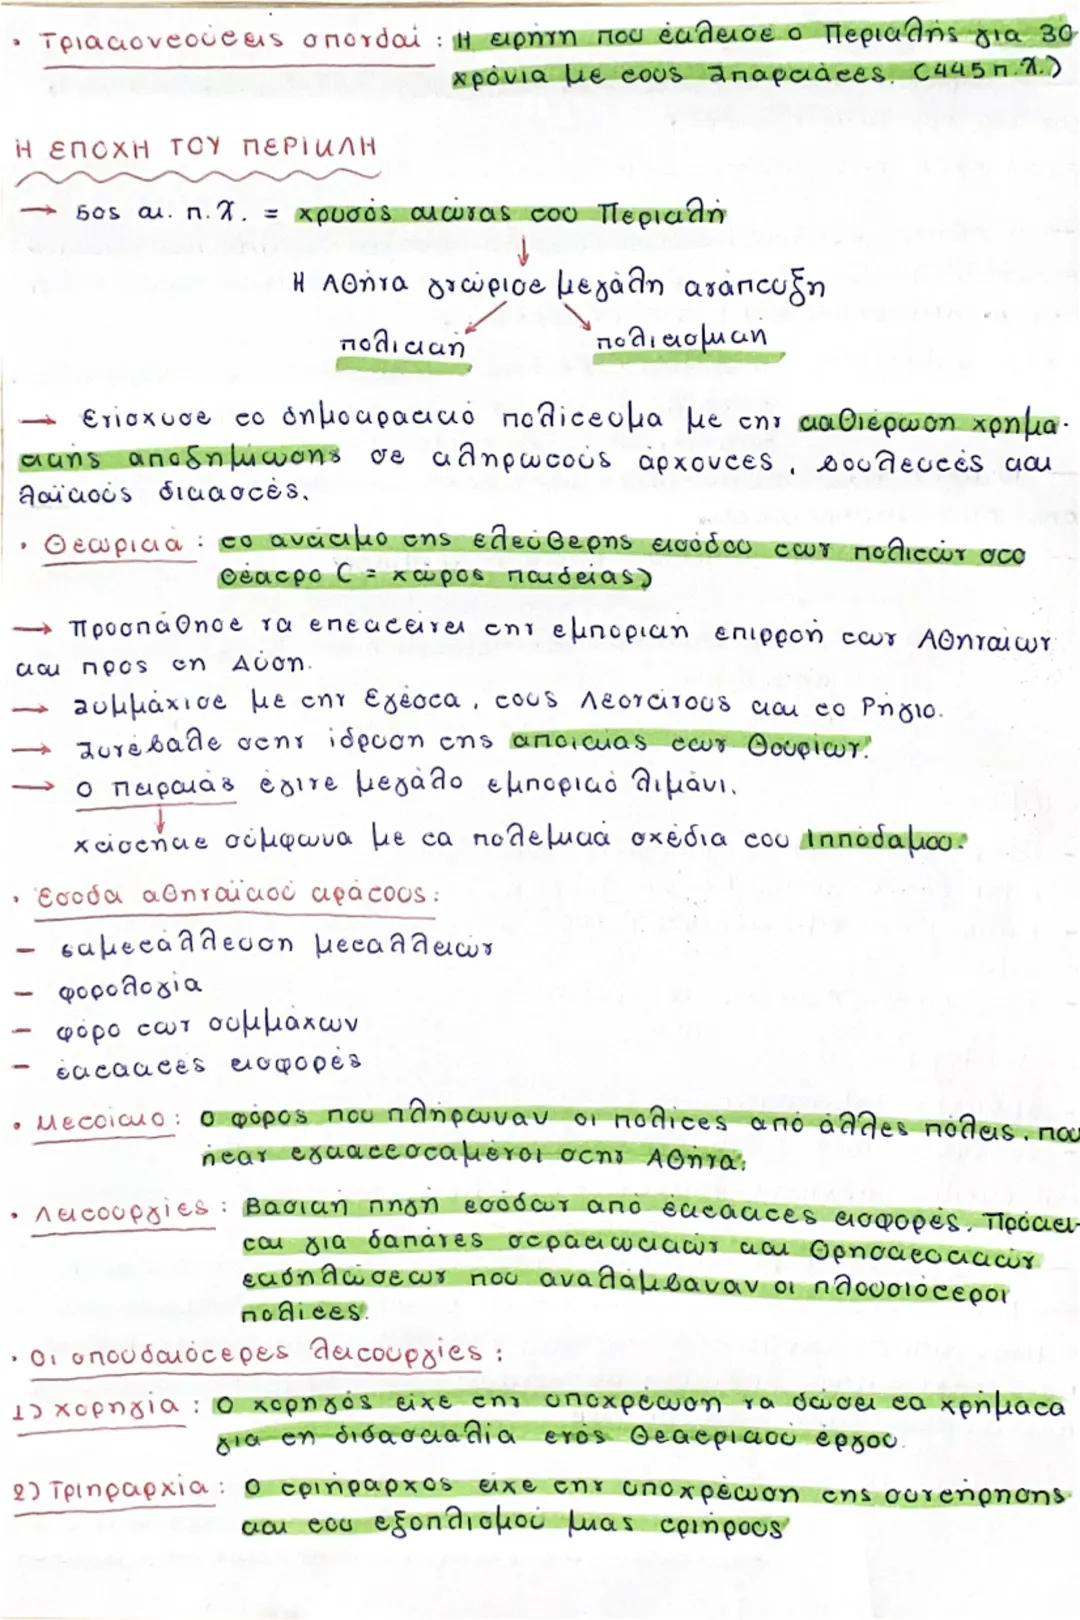 • Τριακοντούτεις σπονδαί : Η ειρήνη που έκλεισε ο Περικλής για 30
χρόνια με τους Σπαρτιάτες. (445 π.Χ.)
Η ΕΠΟΧΗ ΤΟΥ ΠΕΡΙΚΛΗ
→ 5ος αι. π.Χ. = χρυσός αιώνας του Περικλή
↓
Η Αθήνα γνώρισε μεγάλη ανάπτυξη
πολιτική πολιτισμική
→ Ενίσχυσε το δημοκρατικό πολίτευμα με την καθιέρωση χρημα-
τικής αποζημίωσης σε κληρωτούς άρχοντες, βουλευτές και
λαϊκούς δικαστές.
• Θεωρικά : το αντίτιμο της ελεύθερης εισόδου των πολιτών στο
θέατρο ( = χώρος παιδείας)
→ Προσπάθησε να επεκτείνει την εμπορική επιρροή των Αθηναίων
και προς τη Δύση.
→ Συμμάχισε με την Εγέστα, τους Λεοντίνους και το Ρήγιο.
→ Συνέβαλε στην ίδρυση της αποικίας των Θουρίων.
→ Ο Πειραιάς έγινε μεγάλο εμπορικό λιμάνι.
↓
χτίστηκε σύμφωνα με τα πολεμικά σχέδια του Ιππόδαμου.
• Έσοδα αθηναϊκού κράτους:
- εκμετάλλευση μεταλλείων
- φορολογία
- φόρο των συμμάχων
- έκτακτες εισφορές
• Μετοίκιο : Ο φόρος που πλήρωναν οι πολίτες από άλλες πόλεις, που
ήταν εγκατεστημένοι στην Αθήνα.
• Λειτουργίες : Βασική πηγή εσόδων από έκτακτες εισφορές. Πρόκει-
ται για δαπάνες στρατιωτικών και θρησκευτικών
εκδηλώσεων που αναλάμβαναν οι πλουσιότεροι
πολίτες.
• Οι σπουδαιότερες λειτουργίες :
1) χορηγία : Ο χορηγός είχε την υποχρέωση να δώσει τα χρήματα
για τη διδασκαλία ενός θεατρικού έργου.
2) Τριηραρχία : Ο τριήραρχος είχε την υποχρέωση της συντήρησης
και του εξοπλισμού μιας τριήρους